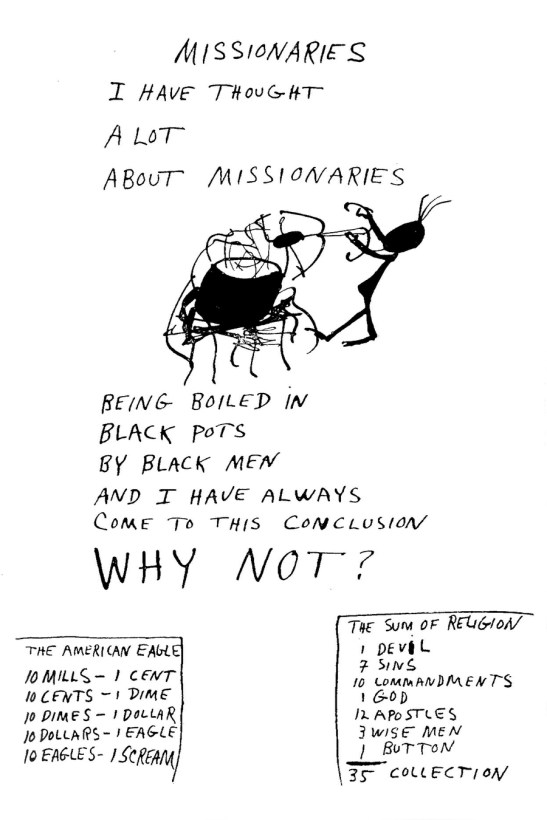 MISSIONARIES
I HAVE THOUGHT
A LOT
ABOUT MISSIONARIES
BEING BOILED IN
BLACK POTS
BY BLACK MEN
AND I HAVE ALWAYS
COME TO THIS CONCLUSION
WHY NOT?
THE AMERICAN EAGLE
10 MILLS - 1 CENT
10 CENTS - 1 DIME
10 DIMES - 1 DOLLAR
10 DOLLARS - 1 EAGLE
10 EAGLES - 1 SCREAM
THE SUM OF RELIGION
1 DEVIL
7 SINS
10 COMMANDMENTS
1 GOD
12 APOSTLES
3 WISE MEN
1 BUTTON
35 COLLECTION